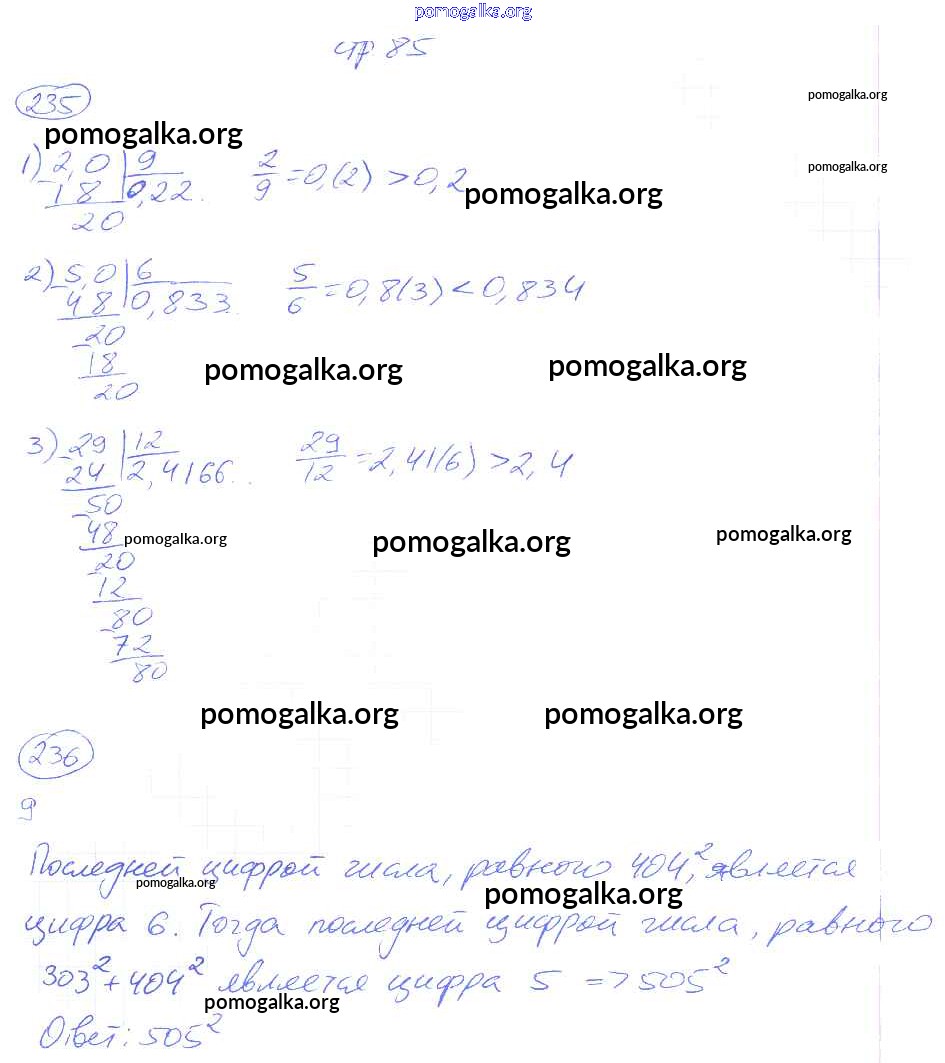 pomogalka.org
стр 85
235
pomogalka.org
pomogalka.org
1) 2,0 | 9    2/9 = 0,(2) > 0,2
pomogalka.org
18 | 0,22..
pomogalka.org
20
2) 5,0 | 6    5/6 = 0,8(3) < 0,834
48 | 0,833.
20
18
pomogalka.org pomogalka.org
20
3) 29 | 12    29/12 = 2,41(6) > 2,4
24 | 2,4166..
50
48 pomogalka.org pomogalka.org pomogalka.org
20
12
80
72
80
pomogalka.org pomogalka.org
236
9
Последней цифрой числа, равного 404², является
pomogalka.org pomogalka.org
цифра 6. Тогда последней цифрой числа, равного
303² + 404² является цифра 5 => 505²
pomogalka.org
Ответ: 505²